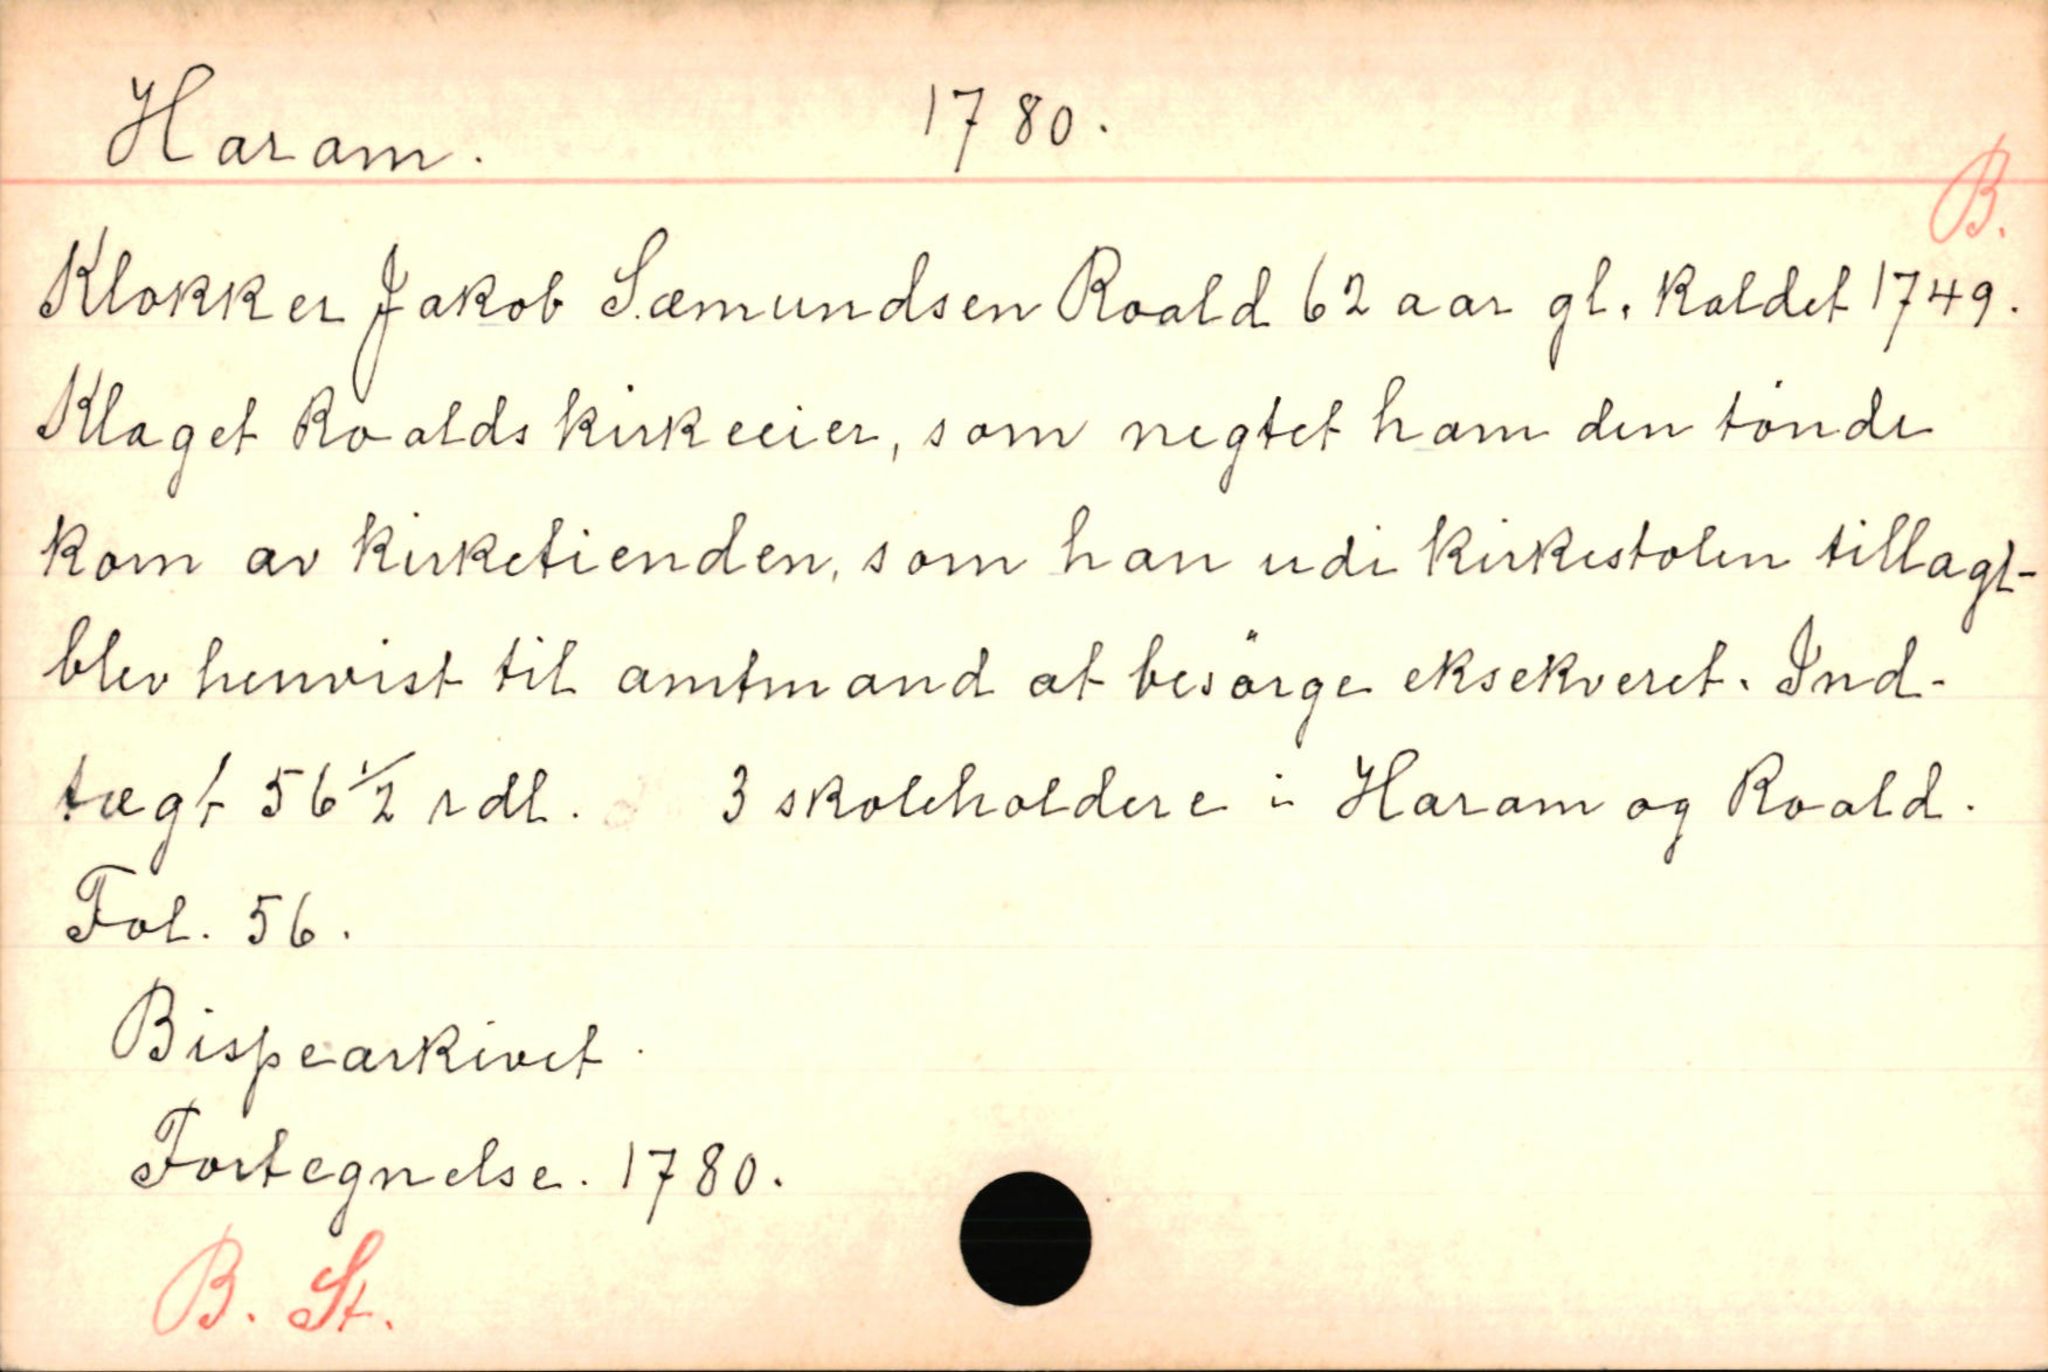 Haram. 1780.
B.
Klokker Jakob Sæmundsen Roald 62 aar gl. Kaldet 1749.
Klaget Roalds kirkeeier, som negtet ham den tönde
korn av kirketienden, som han udi kirkestolen tillagt-
blev henvist til amtmand at besörge eksekveret. Ind-
tægt 56 1/2 rdl. 3 skoleholdere i Haram og Roald.
Fol. 56.
Bispearkivet.
Fortegnelse. 1780.
B. St.